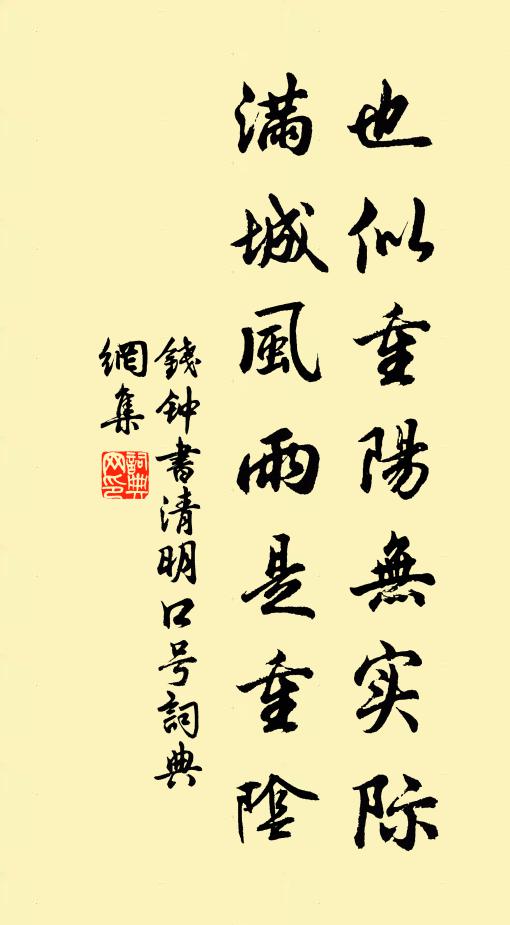 也似重陽無实际
滿城風雨是重陰
錢钟書清明口号詞典
網集
詞典網印